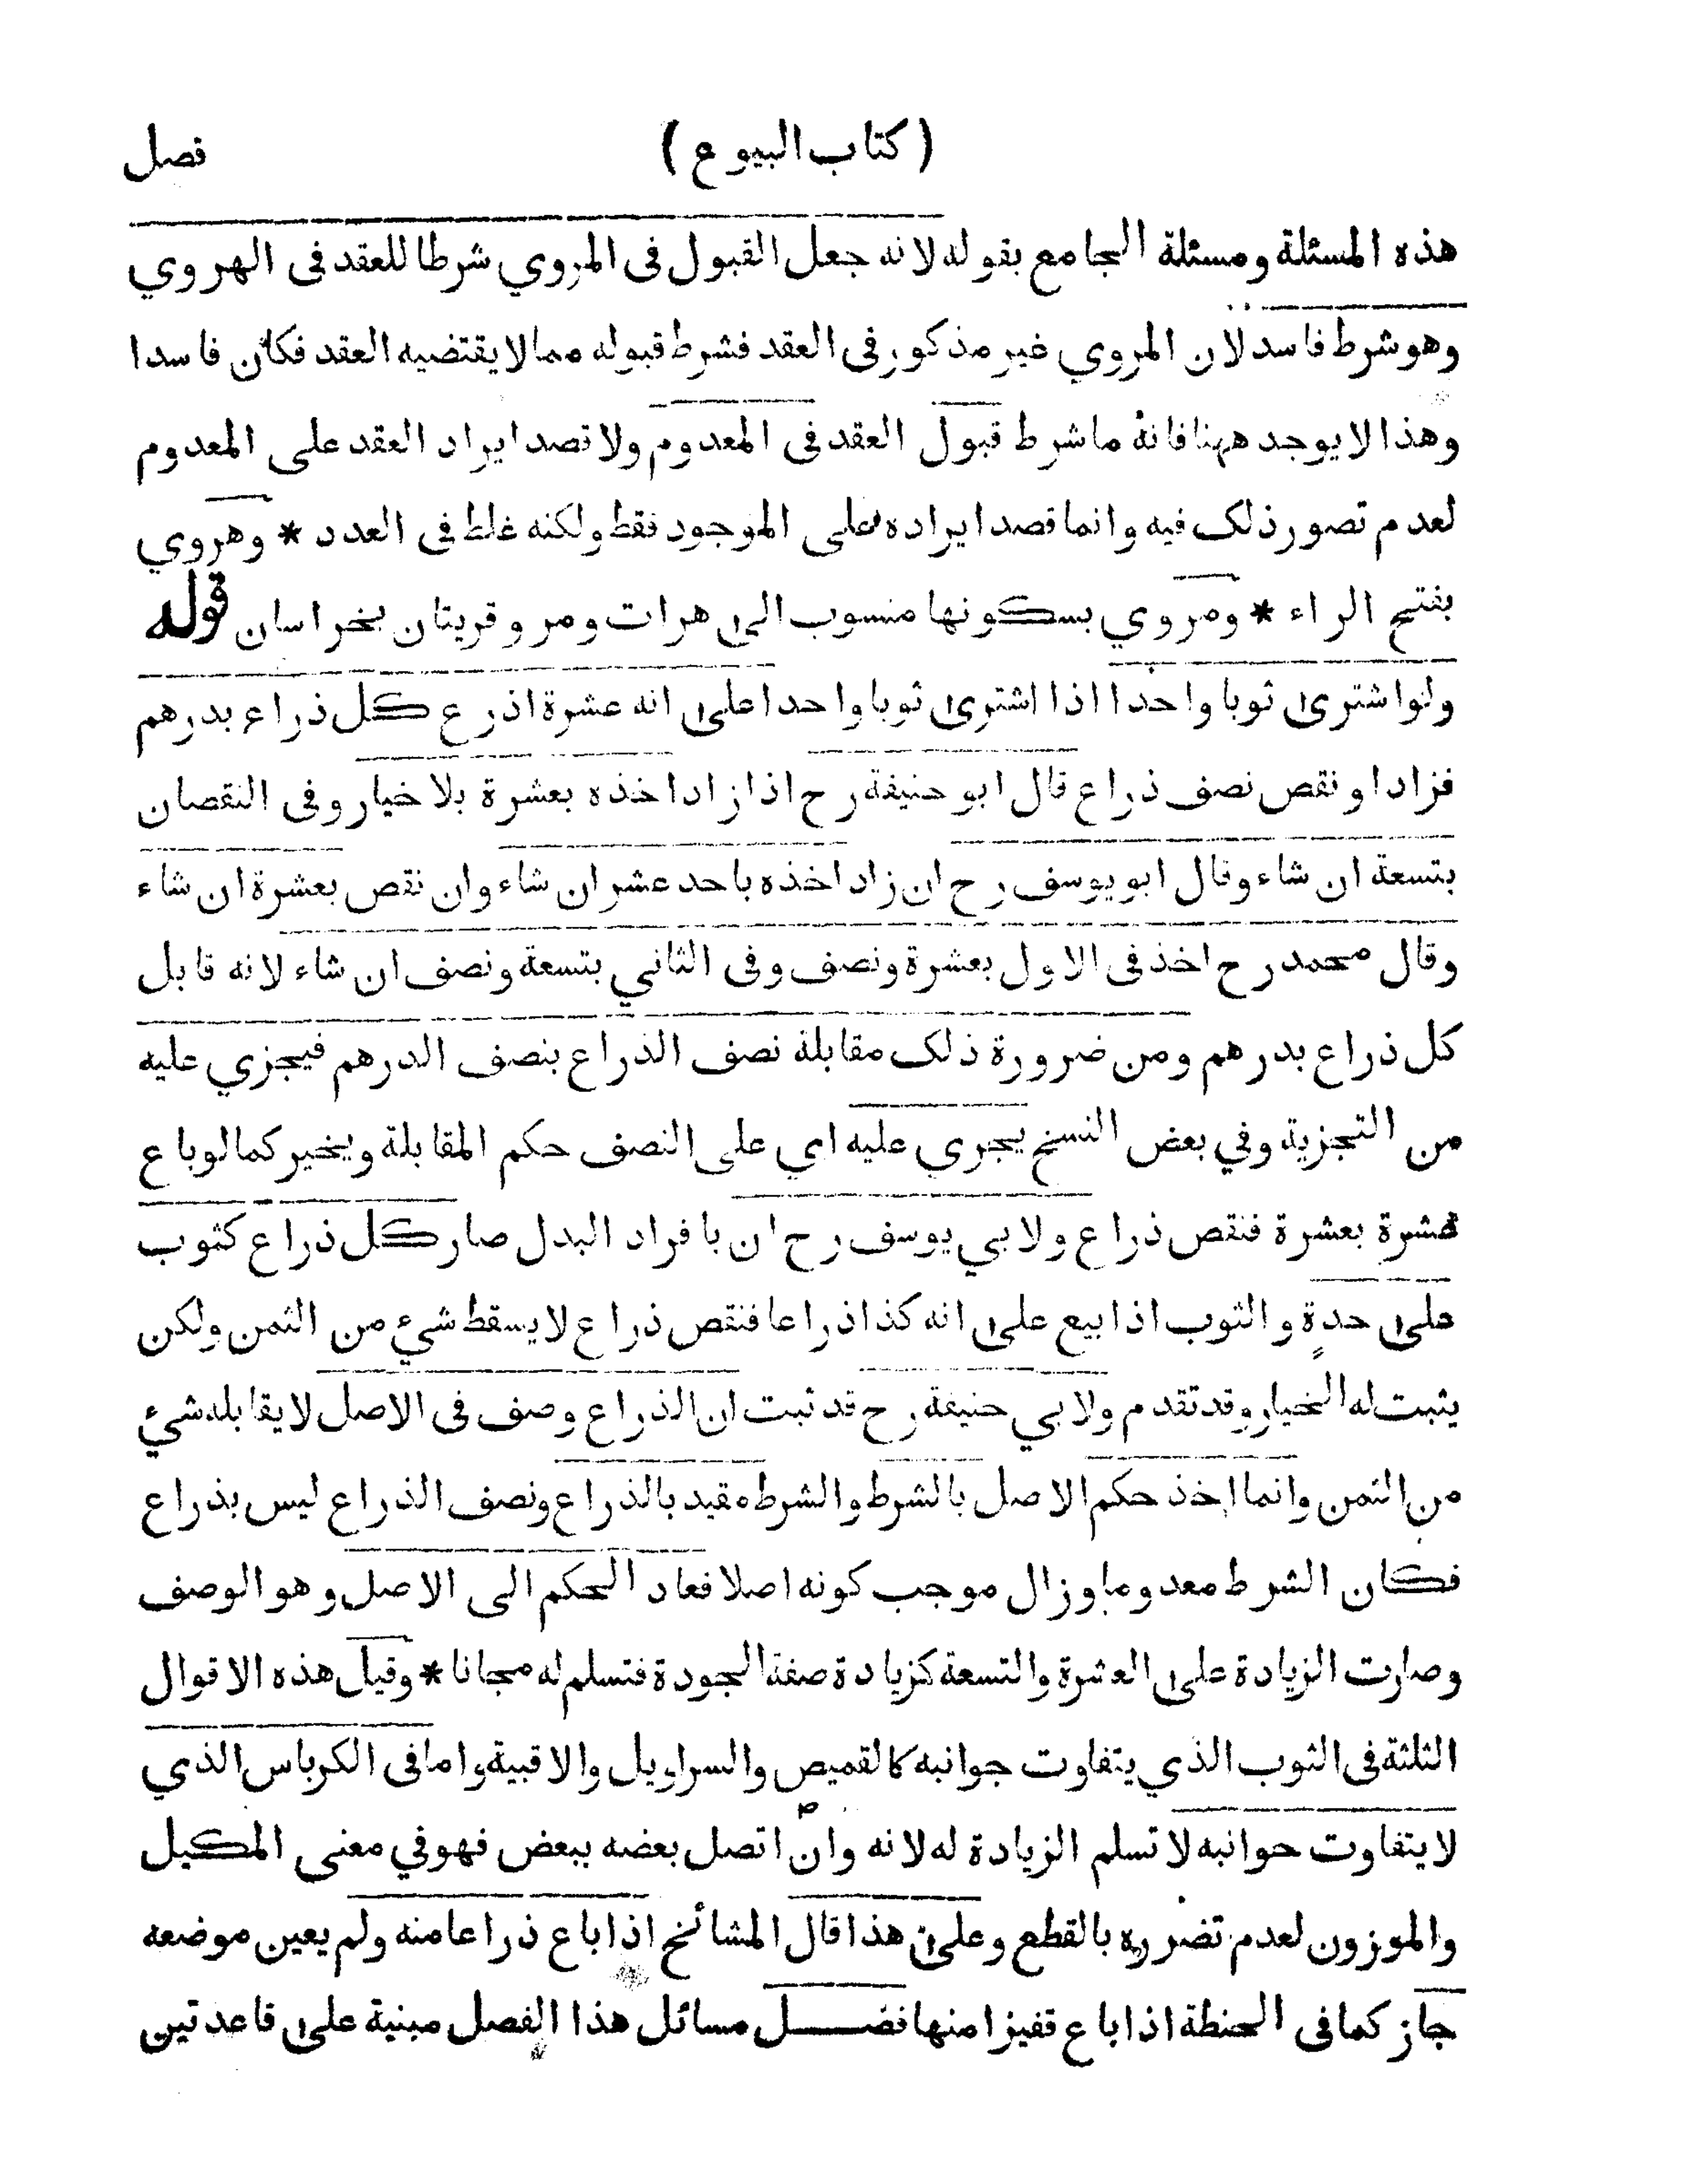 ( كتاب البيوع ) فصل
هذه المسئلة ومسئلة الجامع بقوله لانه جعل القبول فى المروي شرطا للعقد فى الهروي
وهو شرط فاسد لان المروي غير مذكور فى العقد فشرط قبوله مما لا يقتضيه العقد فكان فاسدا
وهذا لا يوجد ههنا فانه ما شرط قبول العقد فى المعدوم ولا قصد ايراد العقد على المعدوم
لعدم تصور ذلك فيه وانما قصد ايراده على الموجود فقط ولكنه غلط فى العدد * وهروي
بفتح الراء * ومروي بسكونها منسوب الى هرات ومرو قريتان بخراسان قوله
ولو اشترى ثوبا واحدا اذا اشترى ثوبا واحدا على انه عشرة اذرع كل ذراع بدرهم
فزاد او نقص نصف ذراع قال ابو حنيفة رح اذا زاد اخذه بعشرة بلا خيار وفى النقصان
بتسعة ان شاء وقال ابو يوسف رح ان زاد اخذه باحد عشر ان شاء وان نقص بعشرة ان شاء
وقال محمد رح اخذ فى الاول بعشرة ونصف وفى الثاني بتسعة ونصف ان شاء لانه قابل
كل ذراع بدرهم ومن ضرورة ذلك مقابلة نصف الذراع بنصف الدرهم فيجزي عليه
من التجزية وفي بعض النسخ يجري عليه اي على النصف حكم المقابلة ويخير كما لو باع
عشرة بعشرة فنقص ذراع ولابي يوسف رح ان بافراد البدل صار كل ذراع كثوب
على حدةٍ والثوب اذا بيع على انه كذا ذراعا فنقص ذراع لا يسقط شيء من الثمن ولكن
يثبت له الخيار وقد تقدم ولابي حنيفة رح قد ثبت ان الذراع وصف فى الاصل لا يقابله شيء
من الثمن وانما اخذ حكم الاصل بالشرط والشرط مقيد بالذراع ونصف الذراع ليس بذراع
فكان الشرط معدوما وزال موجب كونه اصلا فعاد الحكم الى الاصل وهو الوصف
وصارت الزيادة على العشرة والتسعة كزيادة صفة الجودة فتسلم له مجانا * وقيل هذه الاقوال
الثلثة فى الثوب الذي يتفاوت جوانبه كالقميص والسراويل والاقبية واما فى الكرباس الذي
لا يتفاوت جوانبه لا تسلم الزيادة له لانه وان اتصل بعضه ببعض فهو في معنى المكيل
والموزون لعدم تضرره بالقطع وعلى هذا قال المشائخ اذا باع ذراعا منه ولم يعين موضعه
جاز كما فى الحنطة اذا باع قفيزا منها فصـــل مسائل هذا الفصل مبنية على قاعدتين